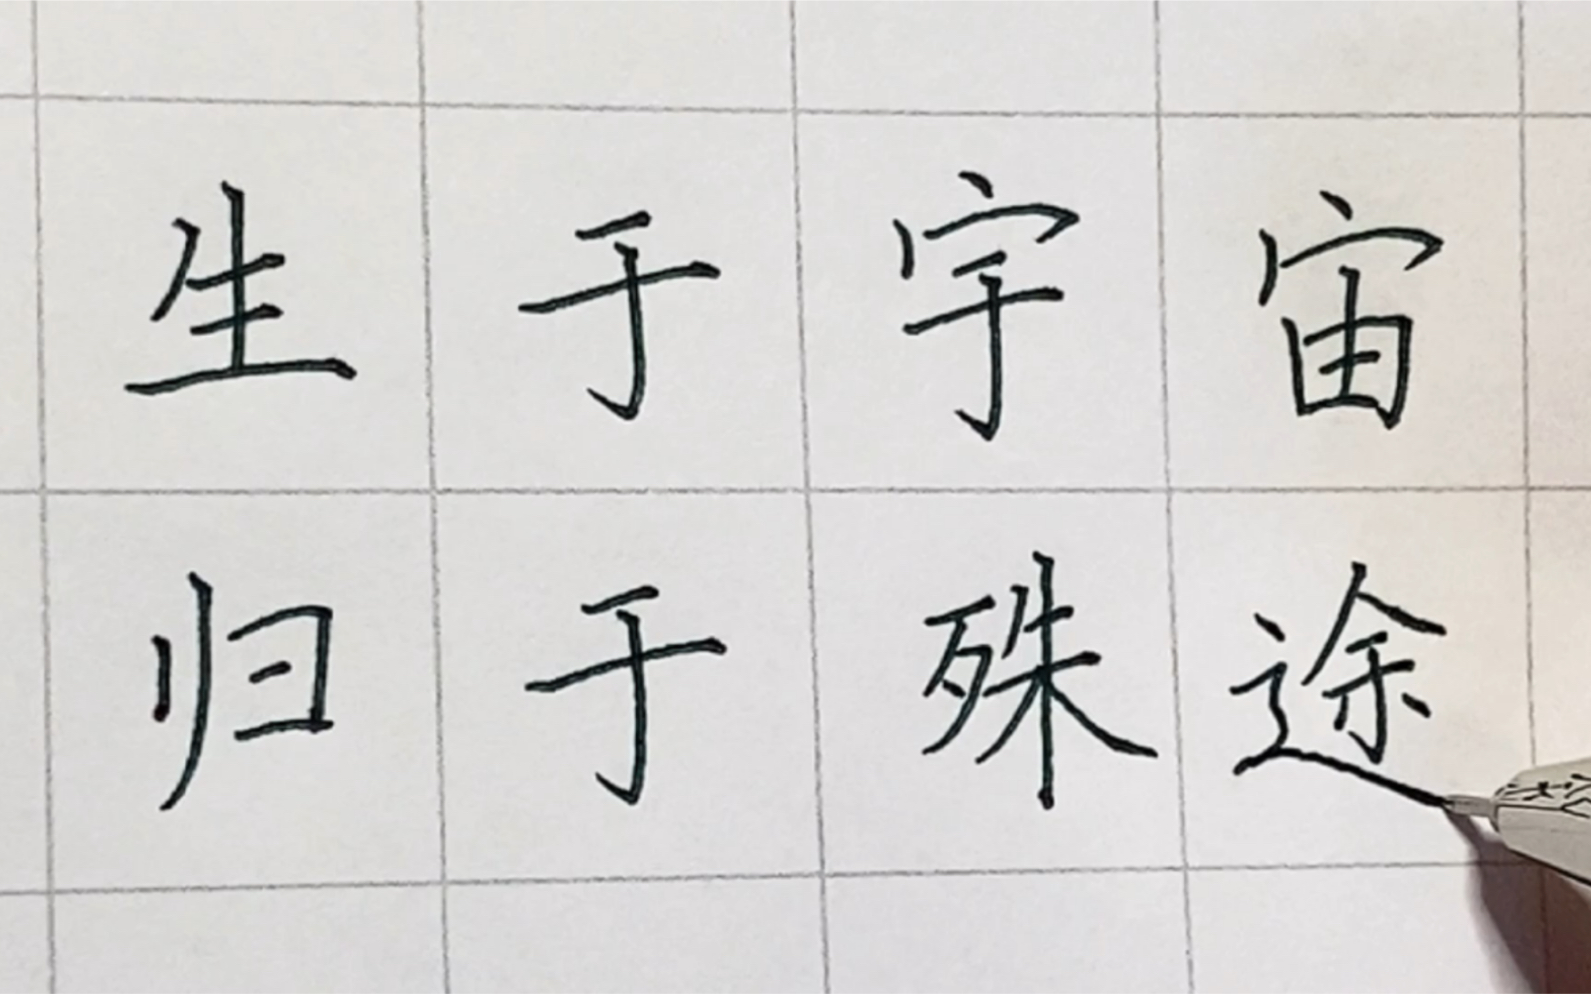 生于宇宙
归于殊途